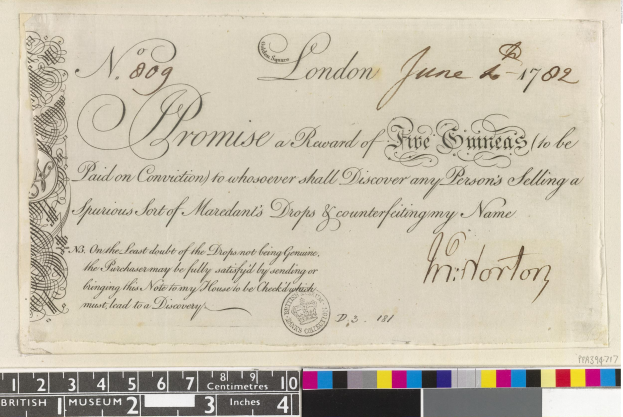 No. 809
Golden Square
London June 2th 1782
I Promise a Reward of Five Guineas (to be
Paid on Conviction) to whosoever shall Discover any Person's Selling a
Spurious Sort of Maredant's Drops & counterfeiting my Name
NB. On the Least doubt of the Drops not being Genuine,
the Purchaser may be fully satisfy'd by sending or
bringing this Note to my House to be Check'd which
must lead to a Discovery.
Jno: Norton
D,3. 181
1 2 3 4 5 6 7 8 9 10
Centimetres
BRITISH MUSEUM
1 2 3 4
Inches